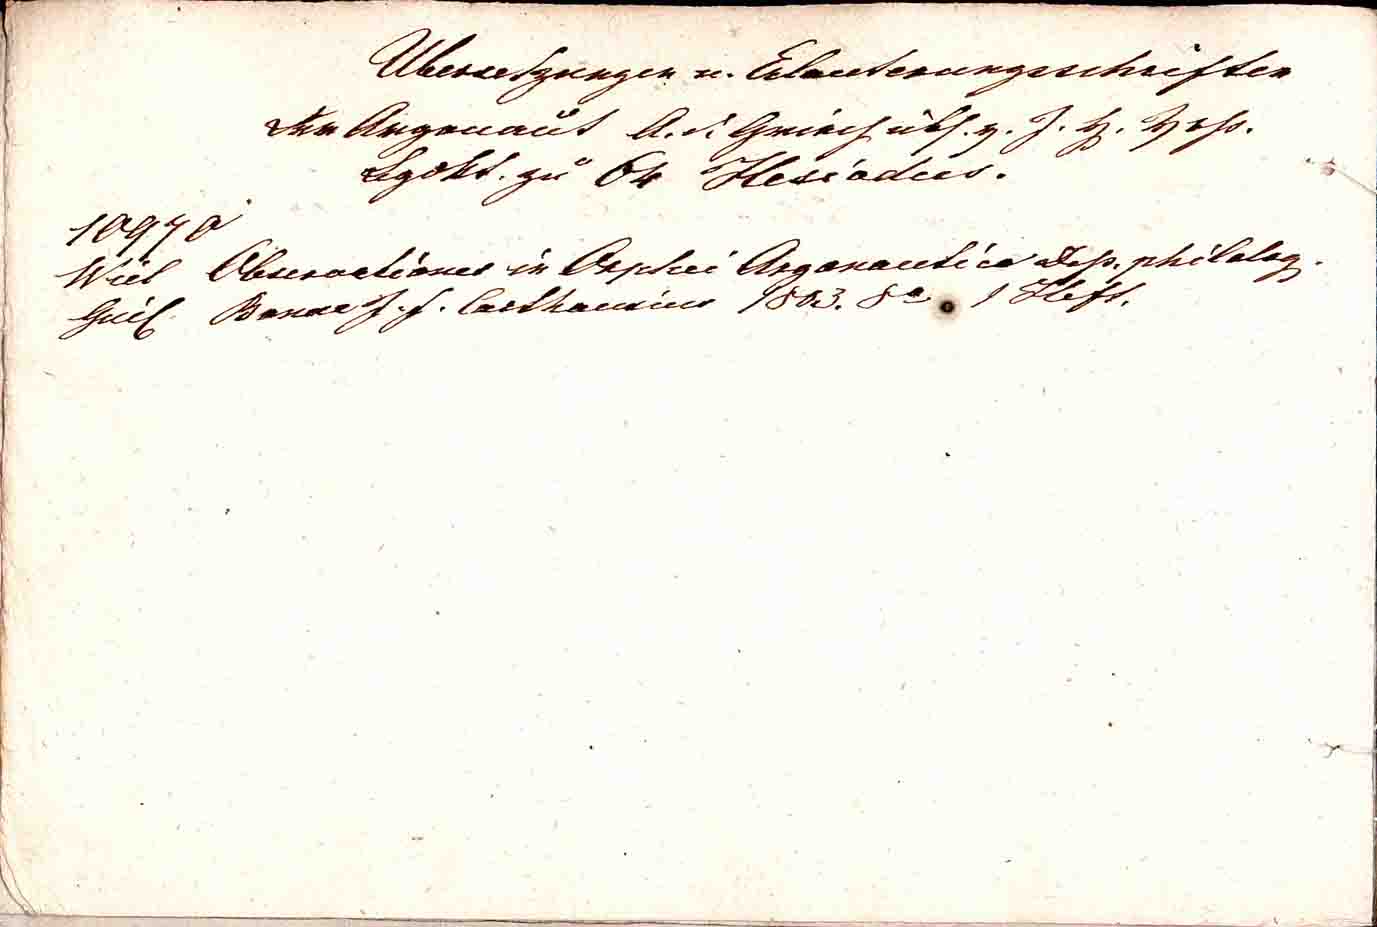 Übersetzungen u. Erläuterungsschriften
Der Argonaut A. d. Griech übs. v. J. H. Voss.
zu 64 Hesiodus.
10970
Wiel Observationes in Orphei Argonautica Diss. philolog.
Guil. Bonnae f. f. Carthausius 1853. 8° 1 Heft.